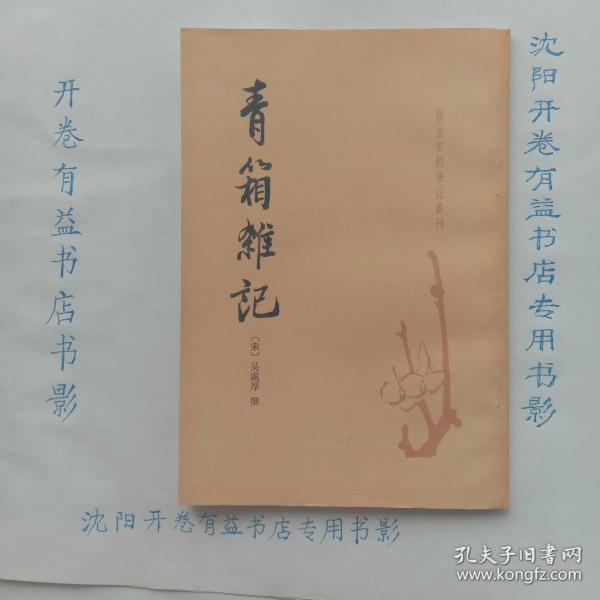 青箱雜記
〔宋〕吴處厚 撰
唐宋史料筆記叢刊
开卷有益书店书影
沈阳开卷有益书店专用书影
沈阳开卷有益书店专用书影
孔夫子旧书网
www.kongfz.com